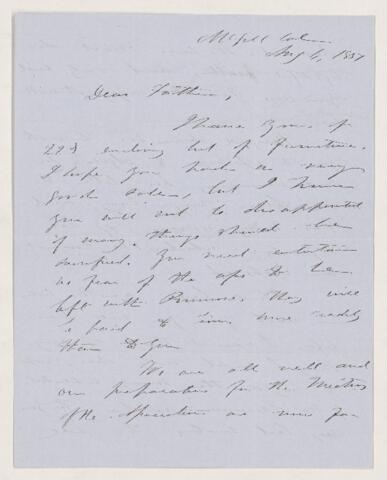 Aug 4, 1857
Dear Father,
I have yours of
228 enclosing list of furniture.
I hope you had a very
good sale, but I know
you will not be disappointed
if many things should be
sacrificed. You need entertain
no fear of the
left with They will
be paid to more readily
than to you
We are all well and
our preparations for the Meeting
of the Association are now